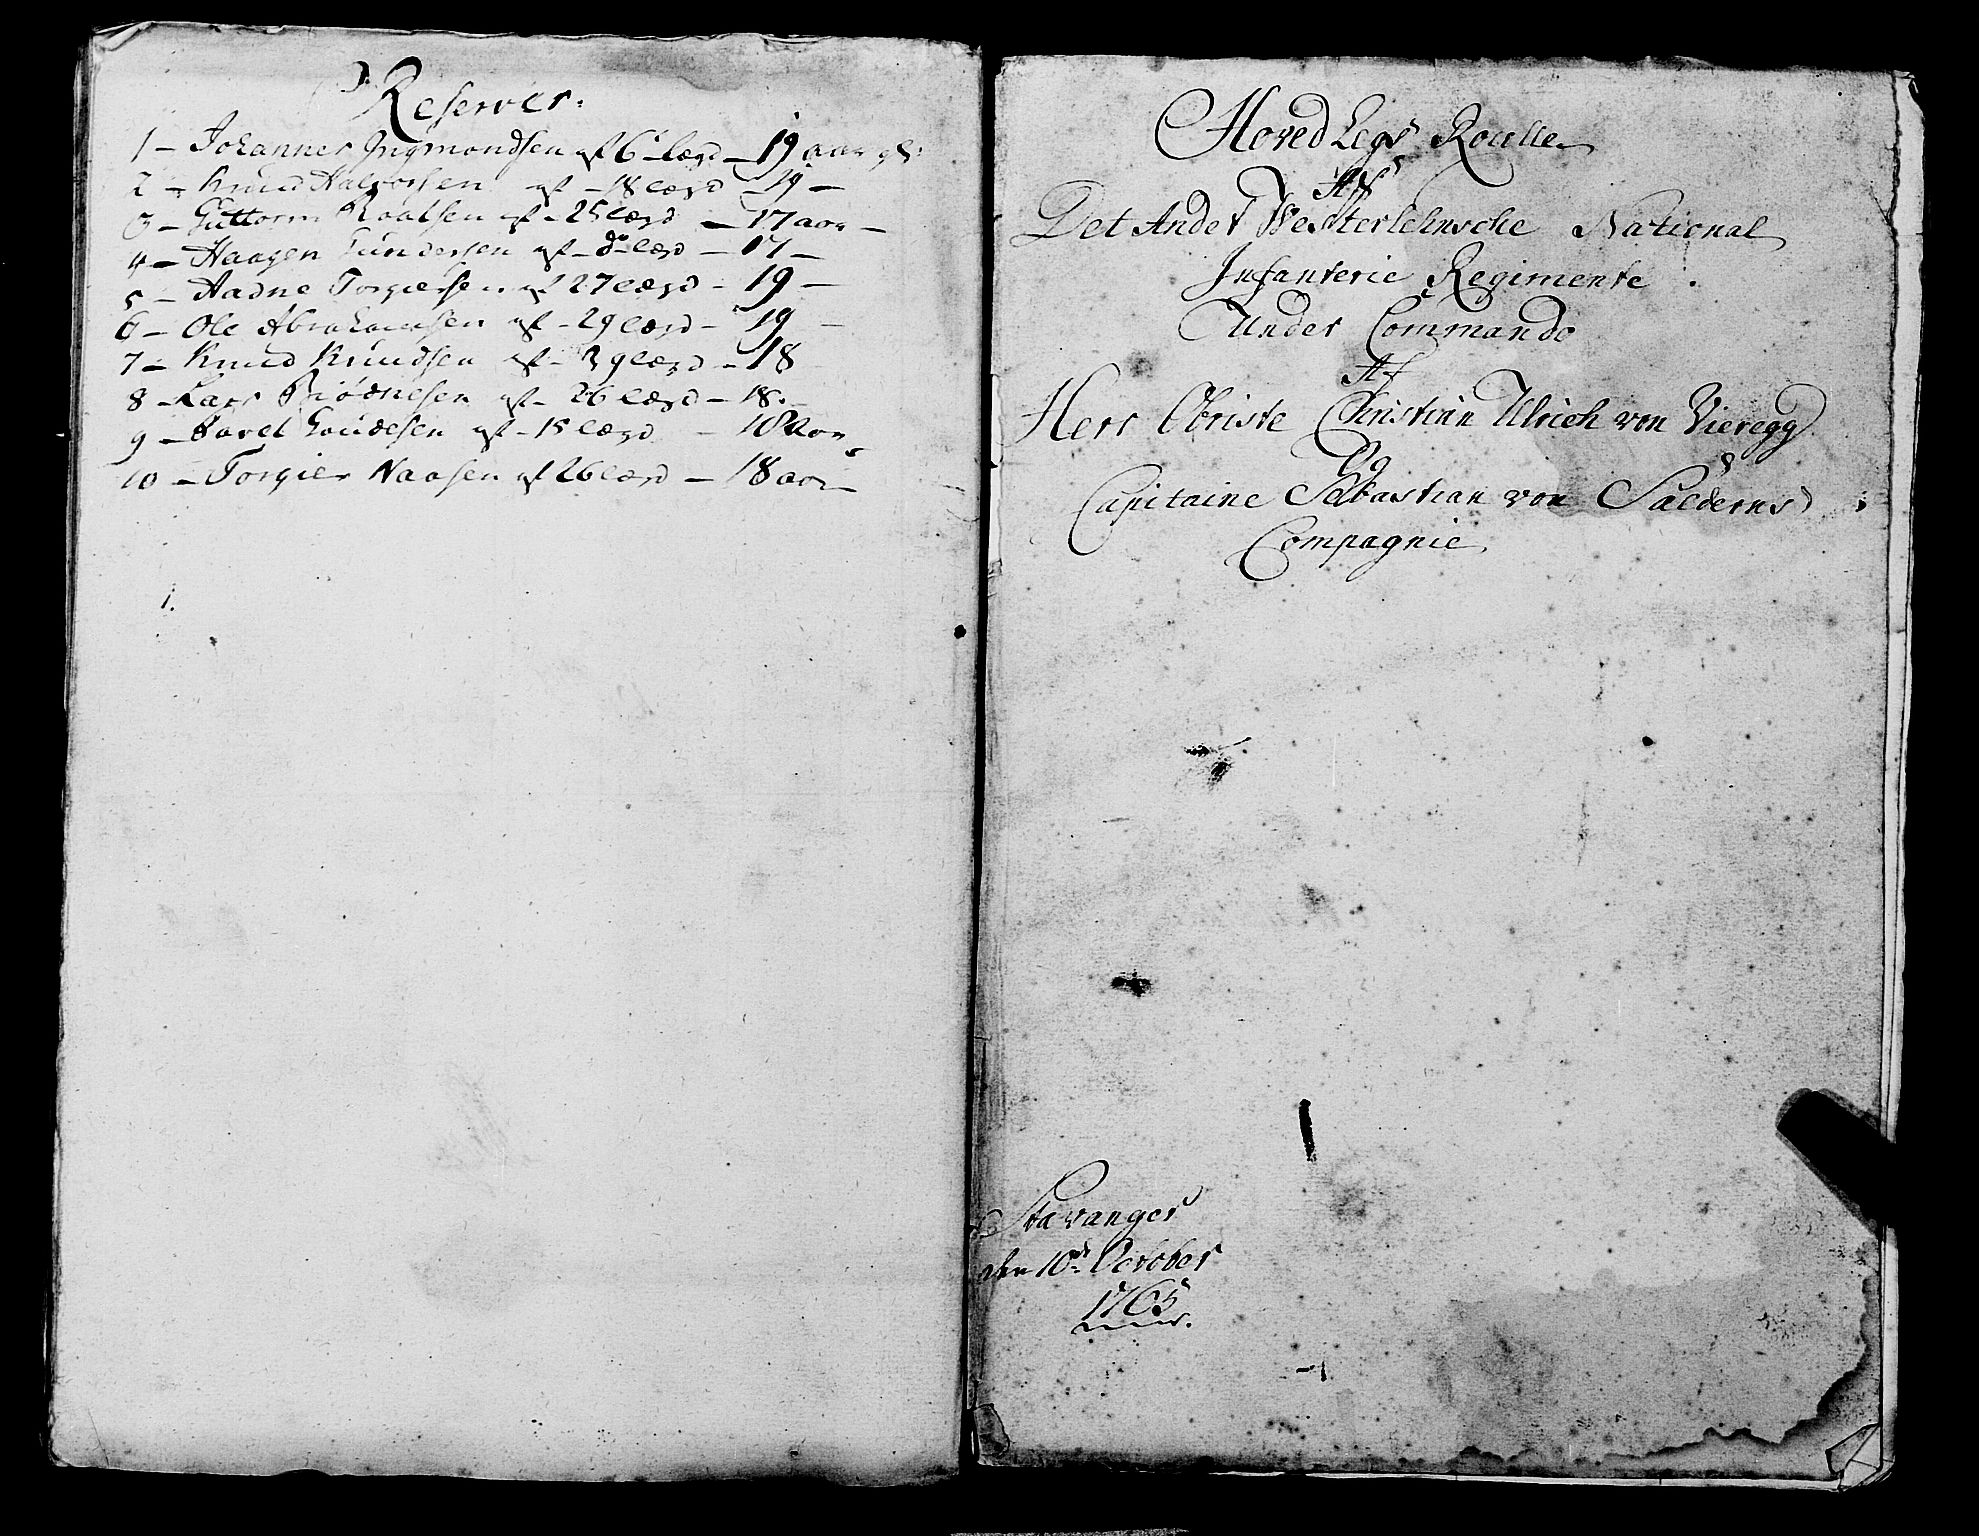 Reserver.
1 - Johannes Ingmondsen af 6 lægd - 19 aar gl:
2 - Knud Halvorsen af - 18 lægd - 19 -
3 - Guttorm Roalsen af - 25 lægd - 17 aar -
4 - Haagen Gundersen af - do lægd - 17 -
5 - Aadne Torgiersen af 27 lægd - 19 -
6 - Ole Abrahamsen af - 29 lægd - 19 -
7 - Knud Knudsen af - 39 lægd - 18
8 - Lars Biødnesen af - 26 lægd - 18. -
9 - Tarel af - 15 lægd - 18 Aar
10 - Torgier Naasen af 26 lægd - 18 aar -
1.
Hoved Legs Roulle
Af
Det Andet Westerlehnsche National
Infanterie Regimente
Under Commando
Af
Herr Obriste Christian Ulrich von Vieregg
Og
Capitaine Sebastian von Salderns
Compagnie
Stavanger
den 10de October
1765